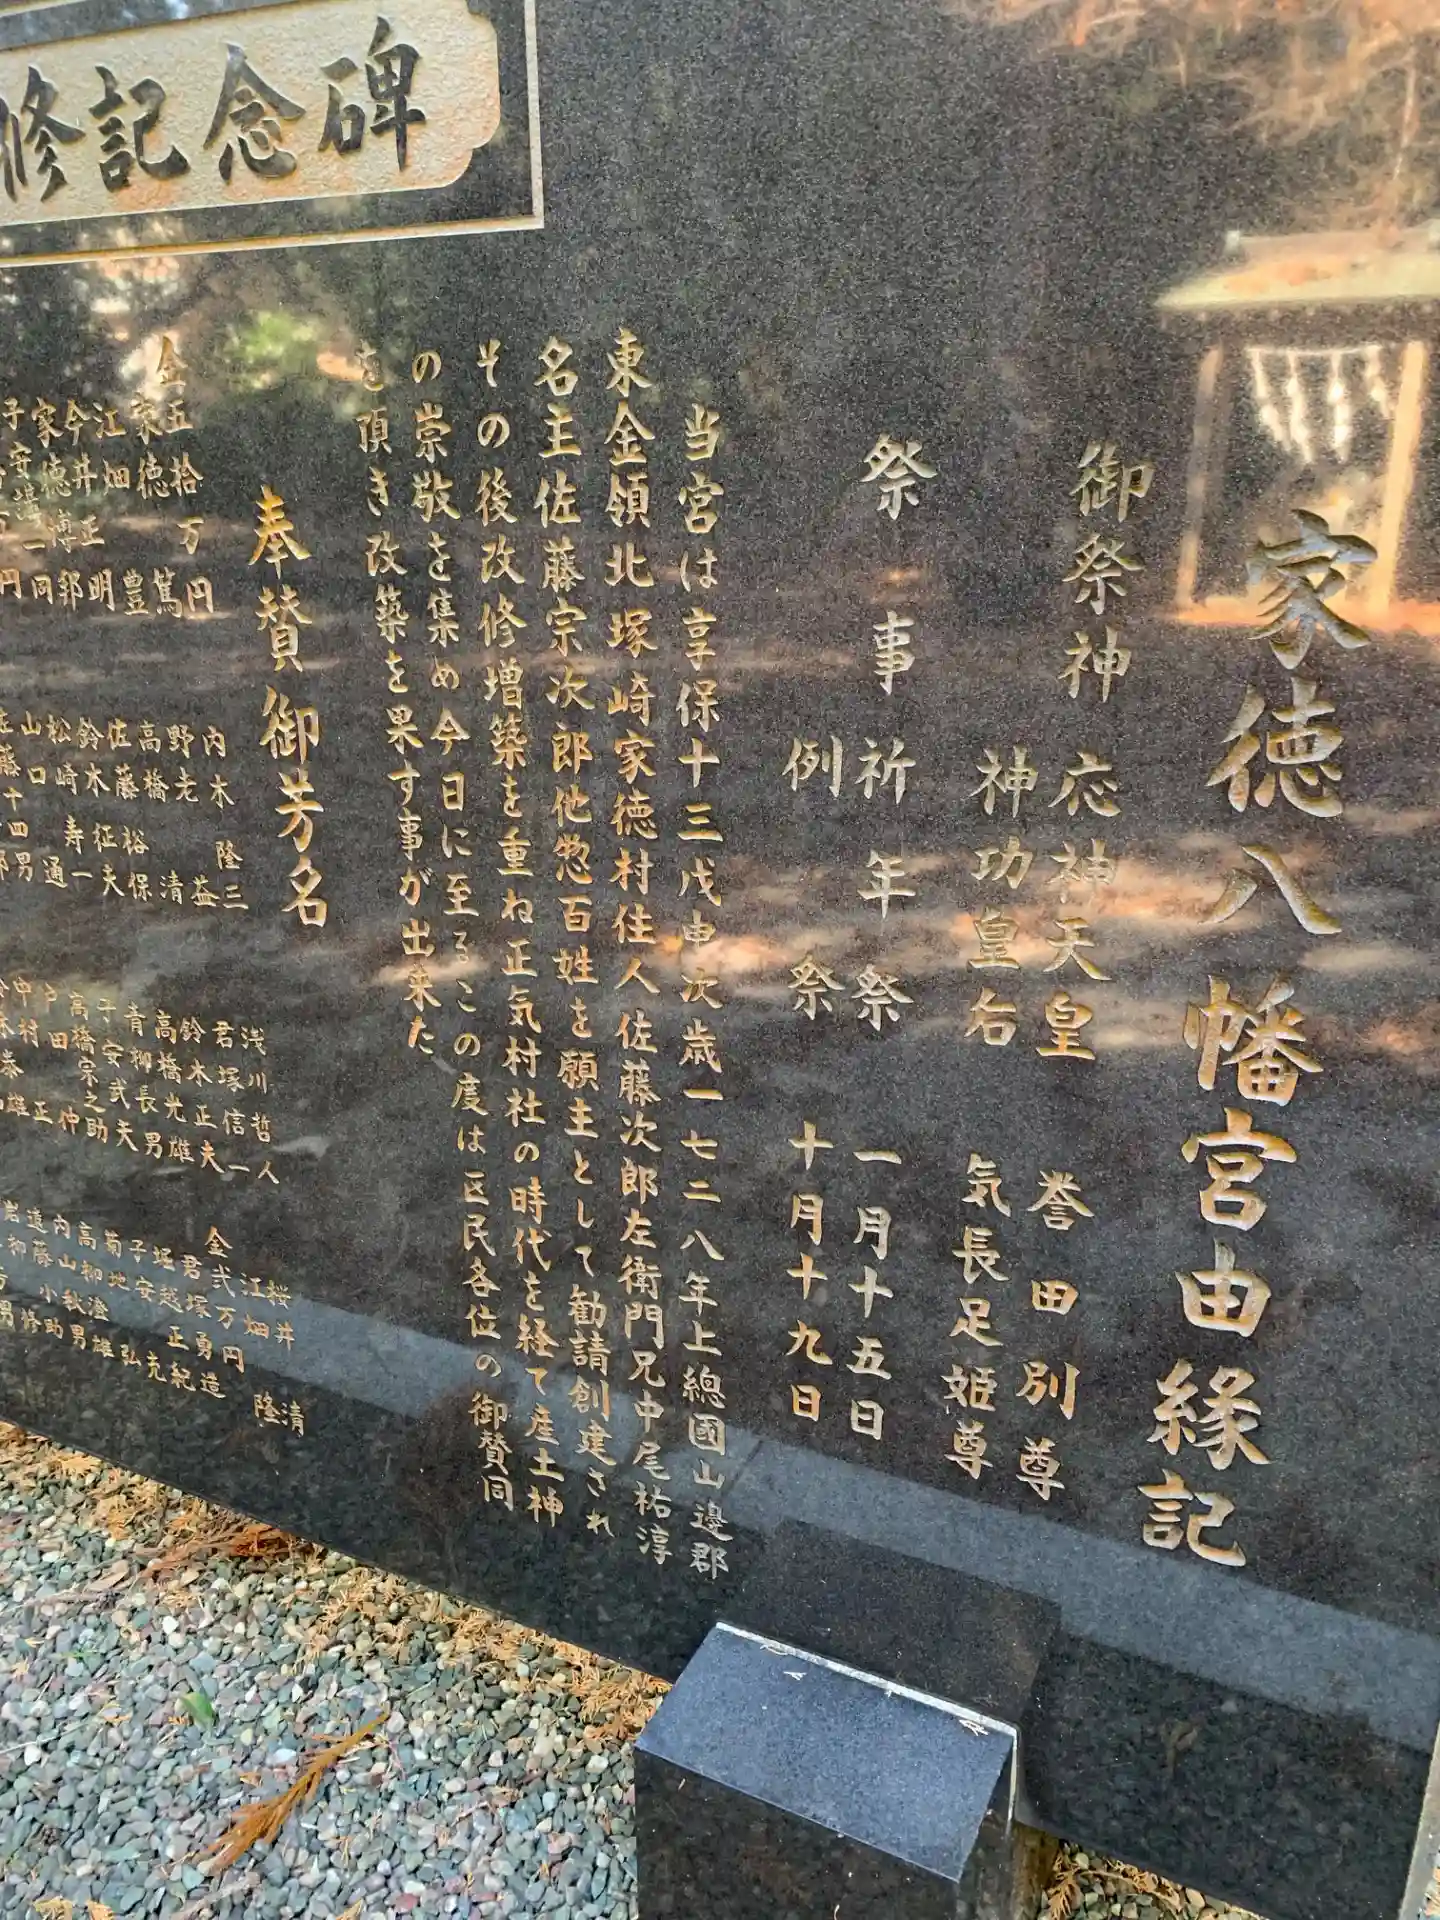 修記念碑
家徳八幡宮由緣記
御祭神 応神天皇 誉田別尊
神功皇后 気長足姫尊
祭事 祈年祭 一月十五日
例祭 十月十九日
当宮は享保十三戊申次歳一七二八年上總國山邊郡
東金領北塚崎家徳村住人佐藤次郎左衛門兄中尾祐淳
名主佐藤宗次郎他惣百姓を願主として勧請創建され
その後改修増築を重ね正気村社の時代を経て産土神
の崇敬を集め今日に至るこの度は区民各位の御賛同
を頂き改築を果す事が出来た
奉賛御芳名
金五拾万円
家徳 篤
江畑 豊
今井正明
家徳博邦
内木隆三
野老 益
高橋 清
佐藤裕保
鈴木征夫
松崎寿一
山口 通
浅川哲人
君塚信一
鈴木正夫
高橋光雄
青柳長男
子安武夫
高橋宗之助
戸田 仲
中村 正
桜井 清
江畑 隆
金弐万円
君塚勇造
堀越正紀
子安 克
菊地澄弘
高柳秋雄
内山小助男
遠藤 修